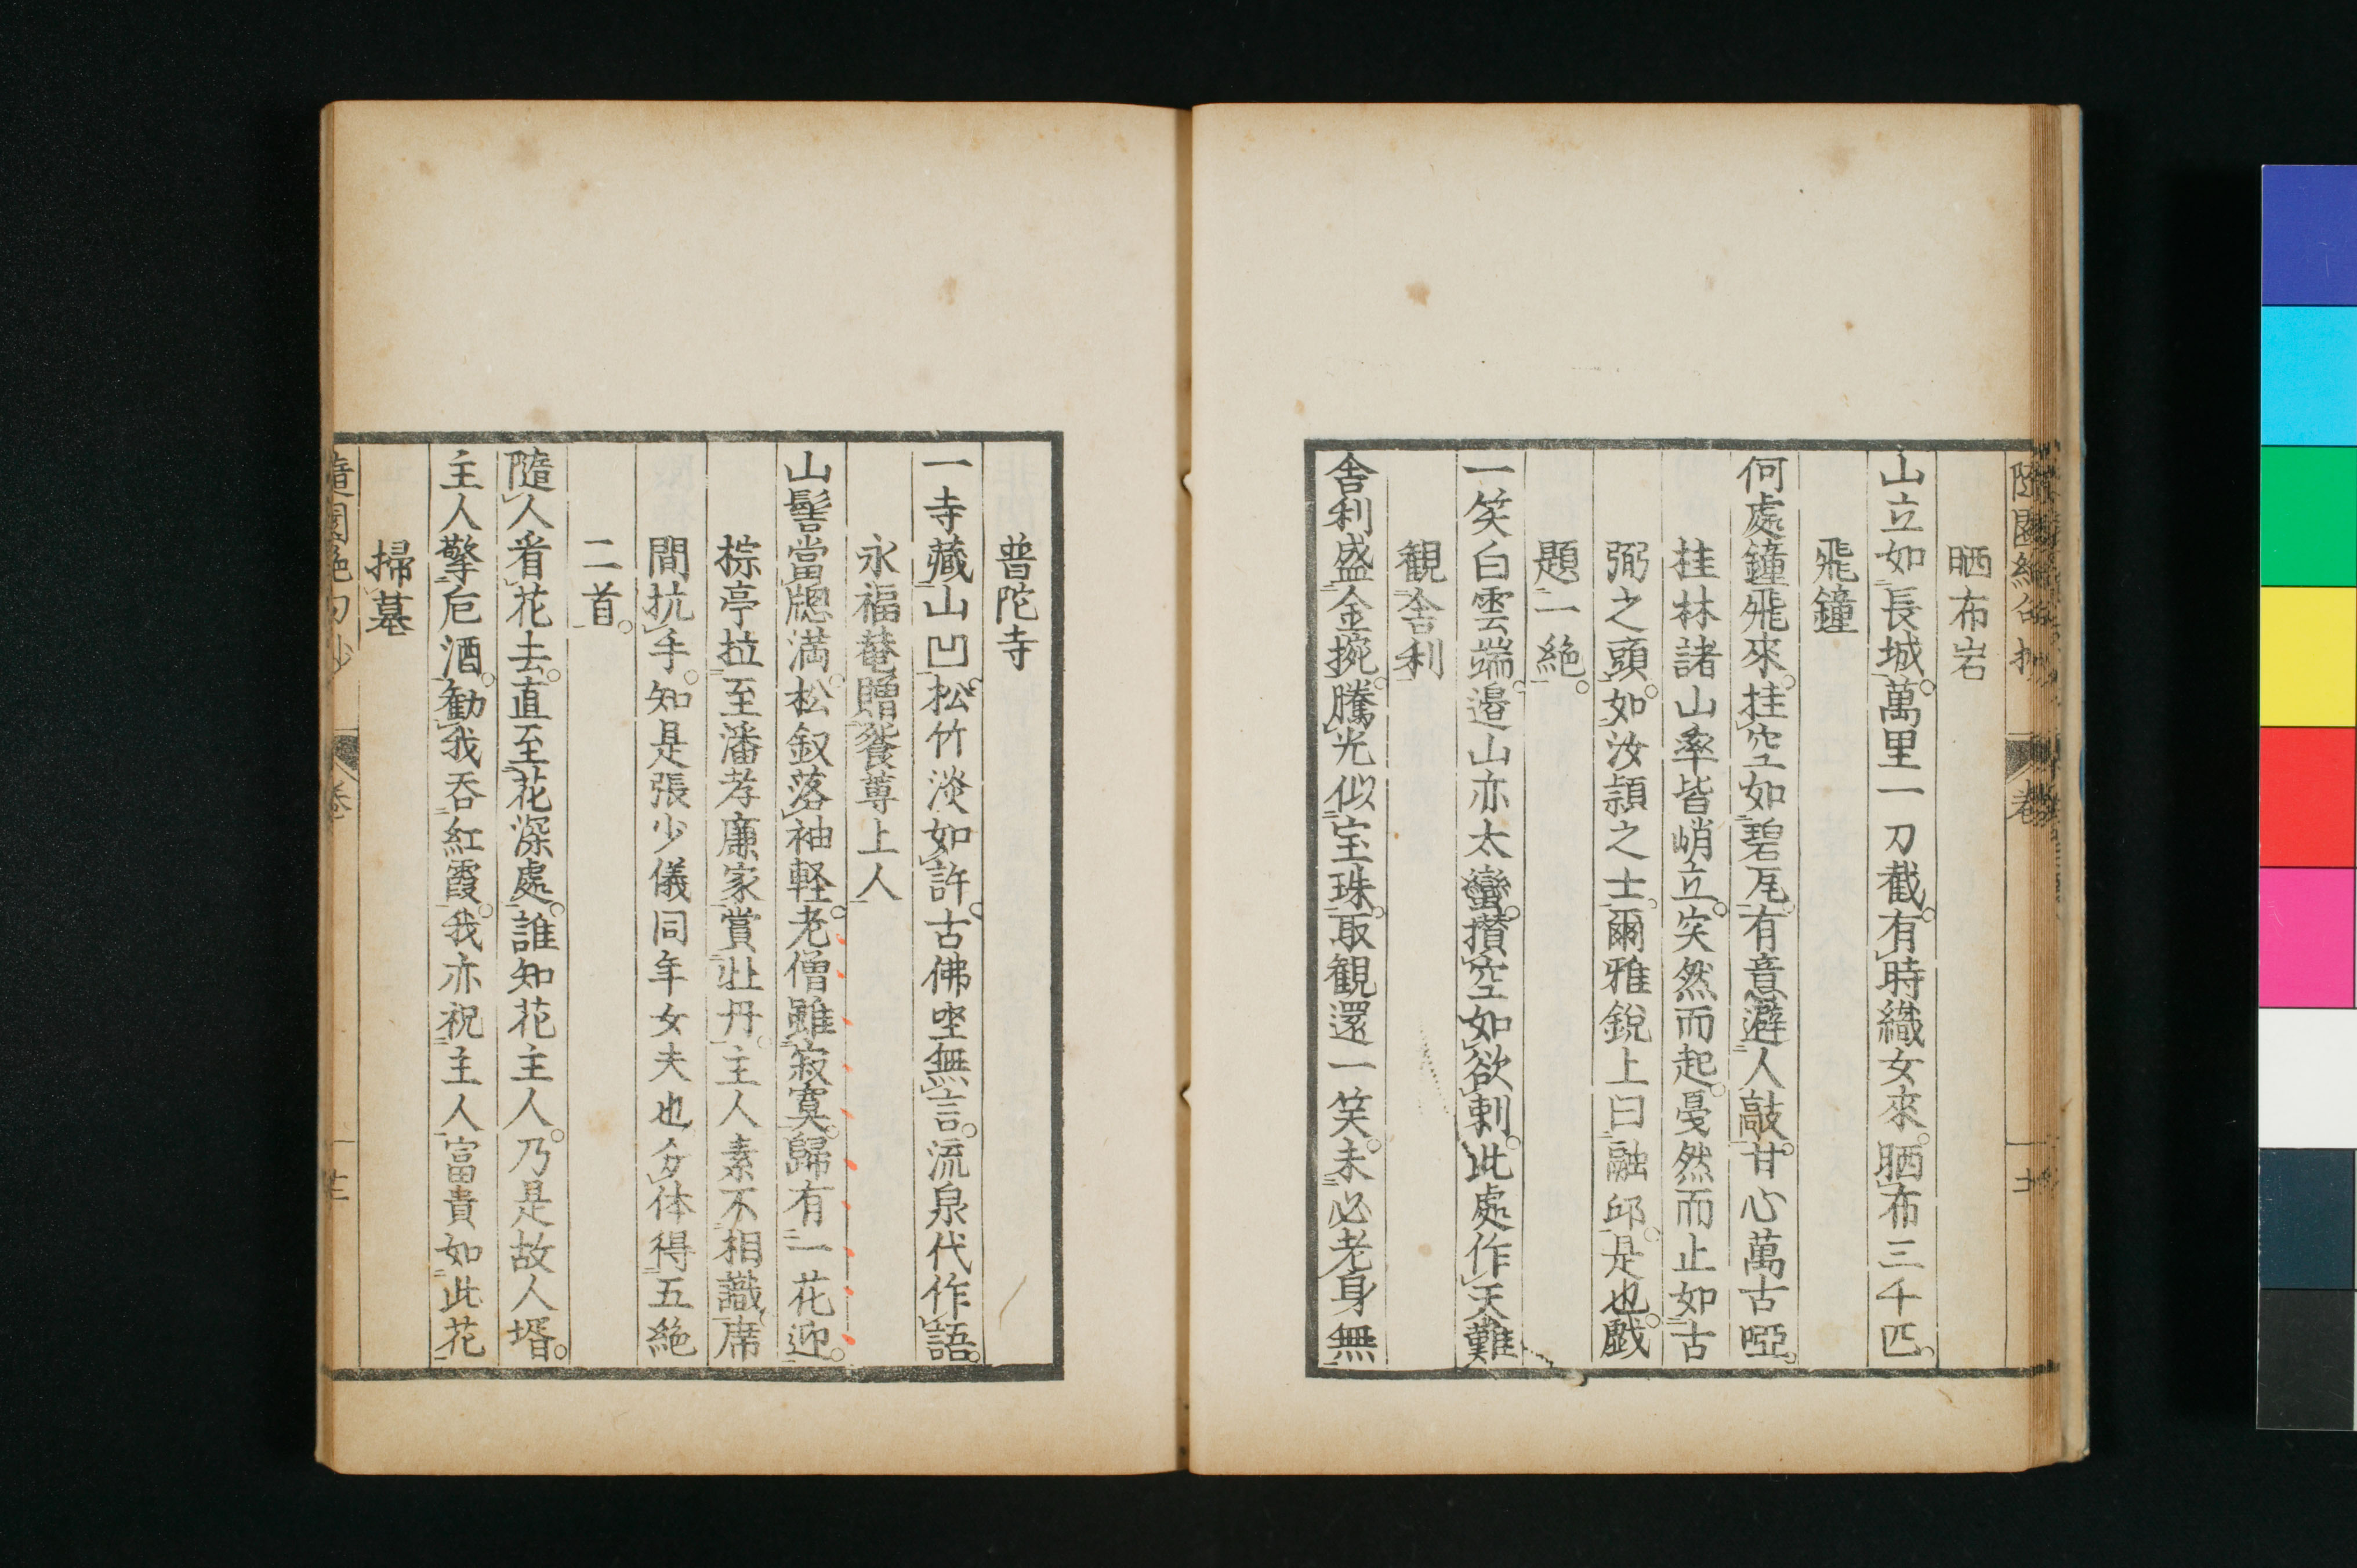 晒布岩
山立如長城。萬里一刀截。有時織女來。晒布三千匹。
飛鐘
何處鐘飛來。挂空如碧瓦。有意避人敲。甘心萬古啞。
桂林諸山率皆峭立。突然而起。戞然而止如古
弼之頭。如汝頴之士。爾雅銳上曰融邱。是也。戯
題一絶。
一笑白雲端。邉山亦太蠻。攅空如欲刺。此處作天難
観舎利
舎利盛金椀。騰光似宝珠。取観還一笑。未必老身無
普陀寺
一寺藏山凹。松竹淡如許。古佛坐無言。流泉代作語。
永福菴贈餐蓴上人
山髻當牕満。松釵落袖軽。老僧雖寂寞。歸有一花迎。
棕亭拉至潘孝廉家賞牡丹。主人素不相識。席
間抗手。知是張少儀同年女夫也。体得五絶
二首。
隨人看花去。直至花深處。誰知花主人。乃是故人壻。
主人擎卮酒。勧我呑紅霞。我亦祝主人富貴如此花
掃墓
隨園絶句抄 卷